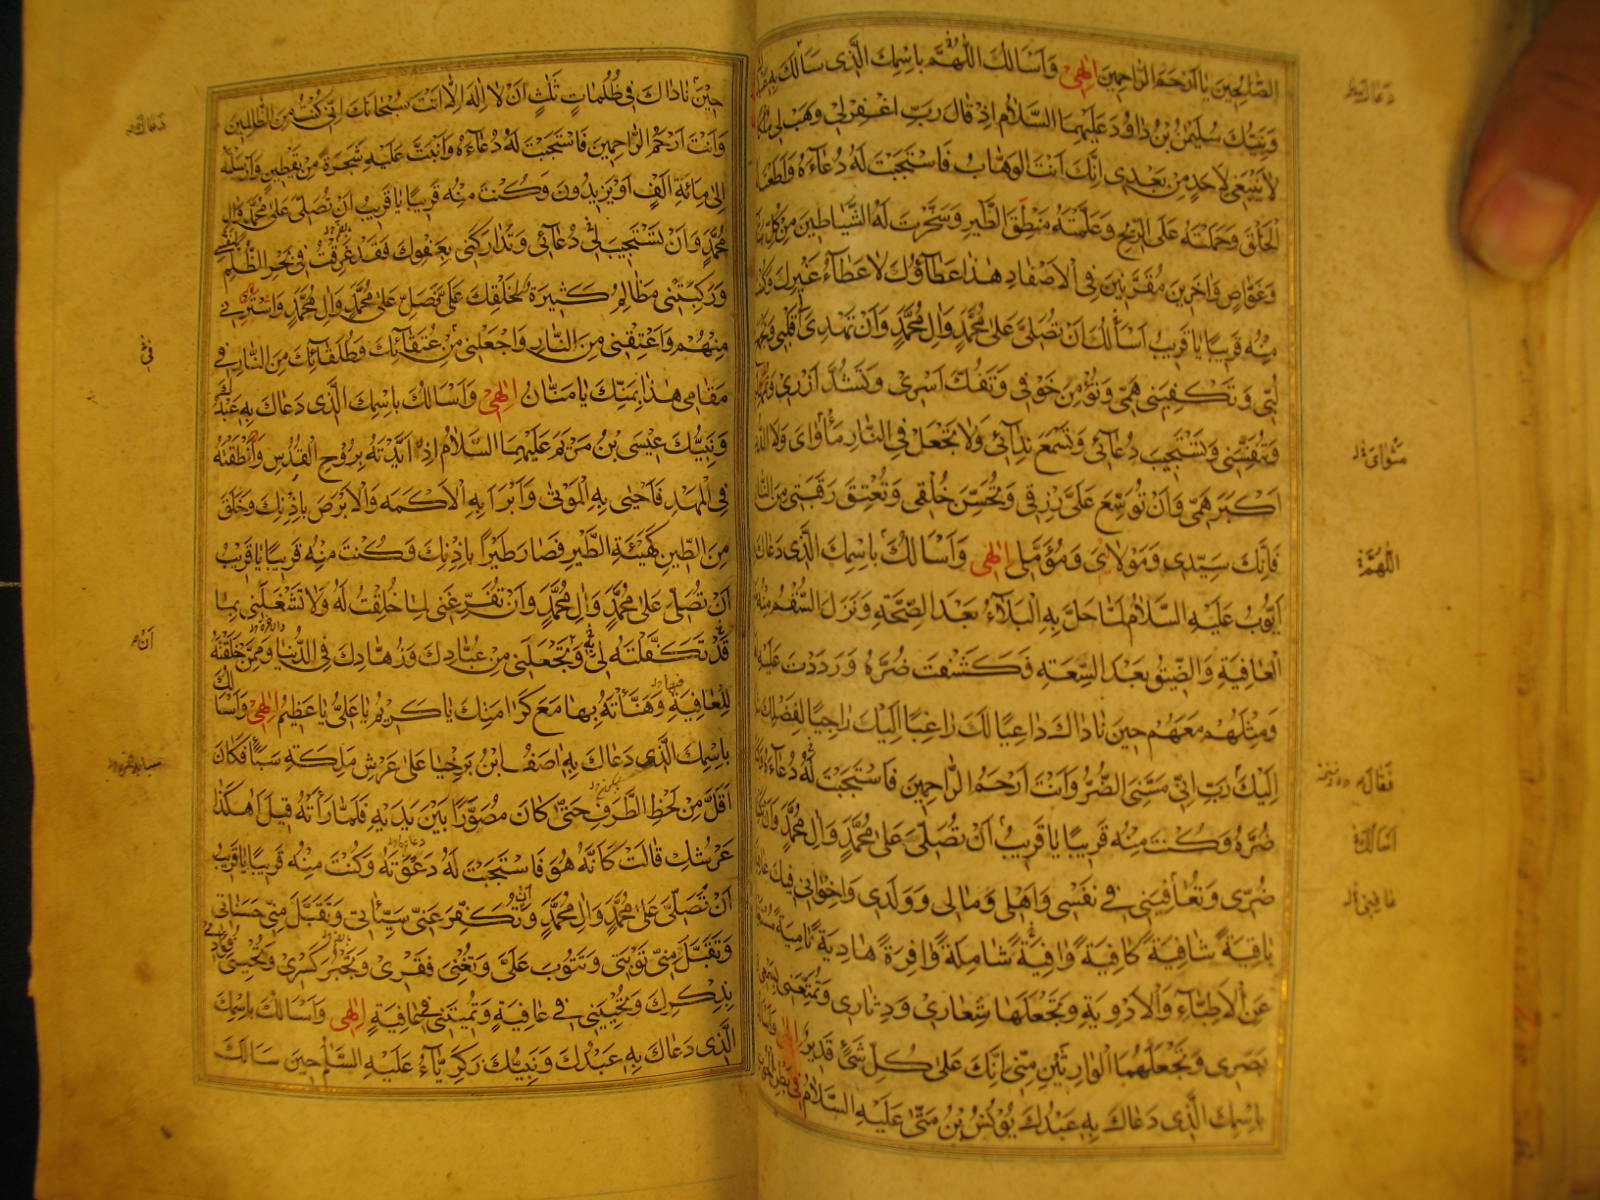 الصَّالِحِينَ يَا اَرْحَمَ الرَّاحِمِينَ اِلٰهِى وَاَسْاَلُكَ اللّٰهُمَّ بِاسْمِكَ الَّذِى سَاَلَكَ بِهِ
وَنَبِيُّكَ سُلَيْمٰنُ بْنُ دَاوُدَ عَلَيْهِمَا السَّلَامُ اِذْ قَالَ رَبِّ اغْفِرْ لِى وَهَبْ لِى
لَا يَنْبَغِى لِاَحَدٍ مِنْ بَعْدِى اِنَّكَ اَنْتَ الْوَهَّابُ فَاسْتَجَبْتَ لَهُ دُعَآءَهُ وَاَطَعْتَ
الْخَلْقَ وَحَمَلْتَهُ عَلَى الرِّيحِ وَعَلَّمْتَهُ مَنْطِقَ الطَّيْرِ وَسَخَّرْتَ لَهُ الشَّيَاطِينَ مِنْ كُلِّ
وَغَوَّاصٍ وَاٰخَرِينَ مُقَرَّنِينَ فِى الْاَصْفَادِ هٰذَا عَطَآؤُكَ لَا عَطَآءُ غَيْرِكَ
مِنْهُ قَرِيبًا يَا قَرِيبُ اَسْاَلُكَ اَنْ تُصَلِّىَ عَلَى مُحَمَّدٍ وَاٰلِ مُحَمَّدٍ وَاَنْ تَهْدِىَ قَلْبِى
لُبِّى وَتَكْفِيَنِى هَمِّى وَتُؤْمِنَ خَوْفِى وَتَفُكَّ اَسْرِى وَتَشُدَّ اَزْرِى
وَتَسْتَجِيبَ دُعَآئِى وَتَسْمَعَ نِدَآئِى وَلَا تَجْعَلْ فِى النَّارِ مَأْوَاىَ وَلَا الدُّنْيَا
اَكْبَرَ هَمِّى وَاَنْ تُوَسِّعَ عَلَىَّ رِزْقِى وَتُحَسِّنَ خُلْقِى وَتُعْتِقَ رَقَبَتِى مِنَ النَّارِ
فَاِنَّكَ سَيِّدِى وَمَوْلَاىَ وَمُؤَمَّلِى اِلٰهِى وَاَسْاَلُكَ بِاسْمِكَ الَّذِى دَعَاكَ
اَيُّوبُ عَلَيْهِ السَّلَامُ لَمَّا حَلَّ بِهِ الْبَلَآءُ بَعْدَ الصِّحَّةِ وَنَزَلَ السُّقْمُ مِنْهُ
الْعَافِيَةِ وَالضِّيقُ بَعْدَ السِّعَةِ فَكَشَفْتَ ضُرَّهُ وَرَدَدْتَ عَلَيْهِ
وَمِثْلَهُمْ مَعَهُمْ حِينَ نَادَاكَ دَاعِيًا لَكَ رَاغِبًا اِلَيْكَ رَاجِيًا لِفَضْلِكَ
اِلَيْكَ رَبِّ اِنِّى مَسَّنِىَ الضُّرُّ وَاَنْتَ اَرْحَمُ الرَّاحِمِينَ فَاسْتَجَبْتَ لَهُ دُعَآءَهُ
ضُرَّهُ وَكُنْتَ مِنْهُ قَرِيبًا يَا قَرِيبُ اَنْ تُصَلِّىَ عَلَى مُحَمَّدٍ وَاٰلِ مُحَمَّدٍ وَاَنْ
ضُرِّى وَتُعَافِيَنِى فِى نَفْسِى وَاَهْلِى وَمَالِى وَوَلَدِى وَاِخْوَانِى فِيكَ
بَاقِيَةً شَافِيَةً كَافِيَةً وَافِيَةً شَامِلَةً وَافِرَةً هَادِيَةً نَامِيَةً
عَنِ الْاَطِبَّآءِ وَالْاَدْوِيَةِ وَتَجْعَلَهَا شِعَارِى وَدِثَارِى وَتُمَتِّعَنِى بِسَمْعِى
بَصَرِى وَتَجْعَلَهُمَا الْوَارِثَيْنِ مِنِّى اِنَّكَ عَلَى كُلِّ شَىْءٍ قَدِيرٌ اِلٰهِى وَاَسْاَلُكَ
بِاسْمِكَ الَّذِى دَعَاكَ بِهِ عَبْدُكَ يُونُسُ بْنُ مَتّٰى عَلَيْهِ السَّلَامُ فِى بَطْنِ الْحُوتِ
مَثْوَاىَ
اللّٰهُمَّ
فَقَالَ
اَسْاَلُكَ
حِينَ نَادَاكَ فِى ظُلُمَاتٍ ثَلٰثٍ اَنْ لَا اِلٰهَ اِلَّا اَنْتَ سُبْحَانَكَ اِنِّى كُنْتُ مِنَ الظَّالِمِينَ
وَاَنْتَ اَرْحَمُ الرَّاحِمِينَ فَاسْتَجَبْتَ لَهُ دُعَآءَهُ وَاَنْبَتَّ عَلَيْهِ شَجَرَةً مِنْ يَقْطِينٍ وَاَرْسَلْتَهُ
اِلَى مِائَةِ اَلْفٍ اَوْ يَزِيدُونَ وَكُنْتَ مِنْهُ قَرِيبًا يَا قَرِيبُ اَنْ تُصَلِّىَ عَلَى مُحَمَّدٍ وَاٰلِ
مُحَمَّدٍ وَاَنْ تَسْتَجِيبَ لِى دُعَآئِى وَتَدَارَكَنِى بِعَفْوِكَ فَقَدْ غَرِقْتُ فِى بَحْرِ الظُّلْمِ لِنَفْسِى
وَرَكِبَتْنِى مَظَالِمُ كَثِيرَةٌ لِخَلْقِكَ عَلَىَّ فَصَلِّ عَلَى مُحَمَّدٍ وَاٰلِ مُحَمَّدٍ وَاسْتُرْنِى
مِنْهُمْ وَاَعْتِقْنِى مِنَ النَّارِ وَاجْعَلْنِى مِنْ عُتَقَآئِكَ وَطُلَقَآئِكَ مِنَ النَّارِ فِى
مَقَامِى هٰذَا بِمَنِّكَ يَا مَنَّانُ اِلٰهِى وَاَسْاَلُكَ بِاسْمِكَ الَّذِى دَعَاكَ بِهِ عَبْدُكَ
وَنَبِيُّكَ عِيسَى بْنُ مَرْيَمَ عَلَيْهِمَا السَّلَامُ اِذْ اَيَّدْتَهُ بِرُوحِ الْقُدُسِ وَاَنْطَقْتَهُ
فِى الْمَهْدِ فَاَحْيٰى بِهِ الْمَوْتٰى وَاَبْرَاَ بِهِ الْاَكْمَهَ وَالْاَبْرَصَ بِاِذْنِكَ وَخَلَقَ
مِنَ الطِّينِ كَهَيْئَةِ الطَّيْرِ فَصَارَ طَيْرًا بِاِذْنِكَ وَكُنْتَ مِنْهُ قَرِيبًا يَا قَرِيبُ
اَنْ تُصَلِّىَ عَلَى مُحَمَّدٍ وَاٰلِ مُحَمَّدٍ وَاَنْ تُفَرِّغَنِى لِمَا خُلِقْتُ لَهُ وَلَا تَشْغَلَنِى بِمَا
قَدْ تَكَفَّلْتَهُ لِى وَتَجْعَلَنِى مِنْ عُبَّادِكَ وَزُهَّادِكَ فِى الدُّنْيَا وَمِمَّنْ خَلَقْتَهُ
لِلْعَافِيَةِ وَهَنَّأْتَهُ بِهَا مَعَ كَرَامَتِكَ يَا كَرِيمُ يَا عَلِىُّ يَا عَظِيمُ اِلٰهِى وَاَسْاَلُكَ
بِاسْمِكَ الَّذِى دَعَاكَ بِهِ اٰصَفُ ابْنُ بَرْخِيَا عَلَى عَرْشِ مَلِكَةِ سَبَأٍ فَكَانَ
اَقَلَّ مِنْ لَحْظِ الطَّرْفِ حَتّٰى كَانَ مُصَوَّرًا بَيْنَ يَدَيْهِ فَلَمَّا رَاَتْهُ قِيلَ اَهٰكَذَا
عَرْشُكِ قَالَتْ كَاَنَّهُ هُوَ فَاسْتَجَبْتَ لَهُ دَعْوَتَهُ وَكُنْتَ مِنْهُ قَرِيبًا يَا قَرِيبُ
اَنْ تُصَلِّىَ عَلَى مُحَمَّدٍ وَاٰلِ مُحَمَّدٍ وَاَنْ تُكَفِّرَ عَنِّى سَيِّئَاتِى وَتَقَبَّلَ مِنِّى حَسَنَاتِى
وَتَقَبَّلَ مِنِّى تَوْبَتِى وَتَتُوبَ عَلَىَّ وَتُغْنِىَ فَقْرِى وَتَجْبُرَ كَسْرِى وَتُحْيِىَ فُؤَادِى
بِذِكْرِكَ وَتُحْيِيَنِى فِى عَافِيَةٍ وَتُمِيتَنِى فِى عَافِيَةٍ اِلٰهِى وَاَسْاَلُكَ بِاسْمِكَ
الَّذِى دَعَاكَ بِهِ عَبْدُكَ وَنَبِيُّكَ زَكَرِيَّآءُ عَلَيْهِ السَّلٰمُ حِينَ سَاَلَكَ